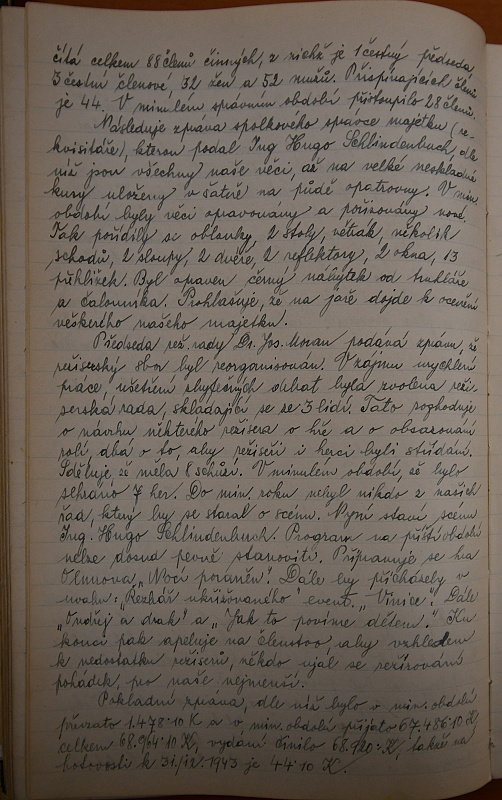 čítá celkem 88 členů činných, z nichž je 1 čestný předseda
3 čestní členové, 32 žen a 52 mužů. Přispívajících členů
je 44. V minulém správním období přistoupilo 28 členů.
Následuje zpráva spolkového správce majetku (re-
kvisitáře), kterou podal Ing Hugo Schlindenbuch, dle
níž jsou všechny naše věci, až na velké neskladné
kusy uloženy v šatně na půdě opatrovny. V min.
období byly věci opravovány a pořizovány nové.
Tak pořídily se oblouky, 2 stoly, větrák, několik
schodů, 2 sloupy, 2 dveře, 2 reflektory, 2 okna, 13
Byl opraven černý nábytek od truhláře
a čalouníka. Prohlašuje, že na jaře dojde k ocenění
veškerého našeho majetku.
Předseda rež. rady Dr. Jos. Moran podává zprávu, že
režisérský sbor byl reorganisován. V zájmu urychlení
práce, ušetření zbytečných debat byla zvolena reži-
sérská rada, skládající se ze 3 lidí. Tato rozhoduje
o návrhu některého režiséra o hře a o obsazování
rolí, dbá o to, aby režiséři i herci byli střídáni.
Sděluje že měla 8 schůzí. V minulém období, že bylo
sehráno 7 her. Do min. roku nebyl nikdo z našich
řad, který by se staral o scénu. Nyní staví scénu
Ing. Hugo Schlindenbuch. Program na příští období
nelze dosud pevně stanoviti. Připravuje se hra
"Nocí poraněn". Dále by přicházely v
úvahu: "Rozhář ukřižovaného" event. "Vinice". Dále
"Ondřej a drak" a "Jak to povíme dětem." Ku
konci pak apeluje na členstvo, aby vzhledem
k nedostatku režisérů, někdo ujal se režírování
pohádek, pro naše nejmenší.
Pokladní zpráva, dle níž bylo v min. období
převzato 1.478·10 K a v min. období přijato 67.486·10 K
celkem 68.964·10 K, vydání činilo 68.920·- K, takže na
hotovosti k 31./12. 1943 je 44·10 K.